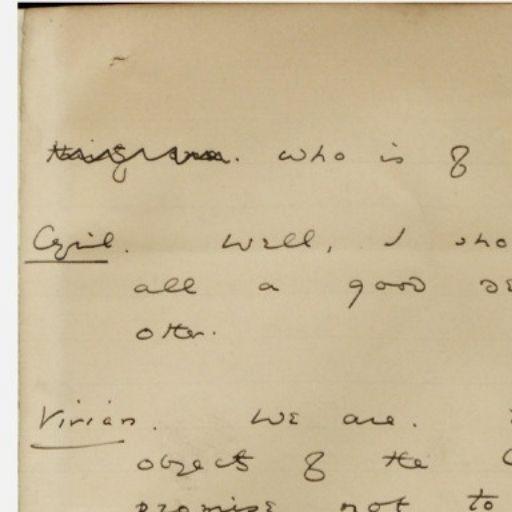 who is of
Cyril. Well, I sho
all a good de
other.
Vivian. We are.
objects of the
promise not to